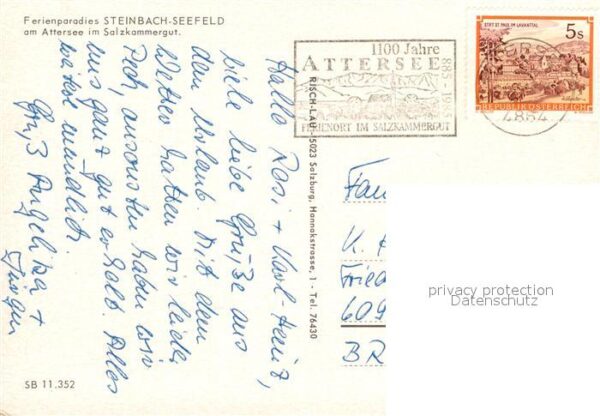 Ferienparadies STEINBACH-SEEFELD
am Attersee im Salzkammergut.
Hallo Rosi + Karl-Heinz,
viele liebe Grüße aus
dem Urlaub. Mit dem
Wetter hatten wir leider
Pech, ansonsten haben wir
uns ganz gut erholt. Alles
weitere mündlich.
Gruß Angelika +
Jürgen
SB 11.352
RISCH-LAU - 5023 Salzburg, Hannakstrasse, 1 - Tel. 76430
1100 Jahre
ATTERSEE
885-1985
FERIENORT IM SALZKAMMERGUT
STIFT ST. PAUL IM LAVANTTAL
5s
REPUBLIK ÖSTERREICH
4864
Fam
K.
Fried
609
BR
privacy protection
Datenschutz